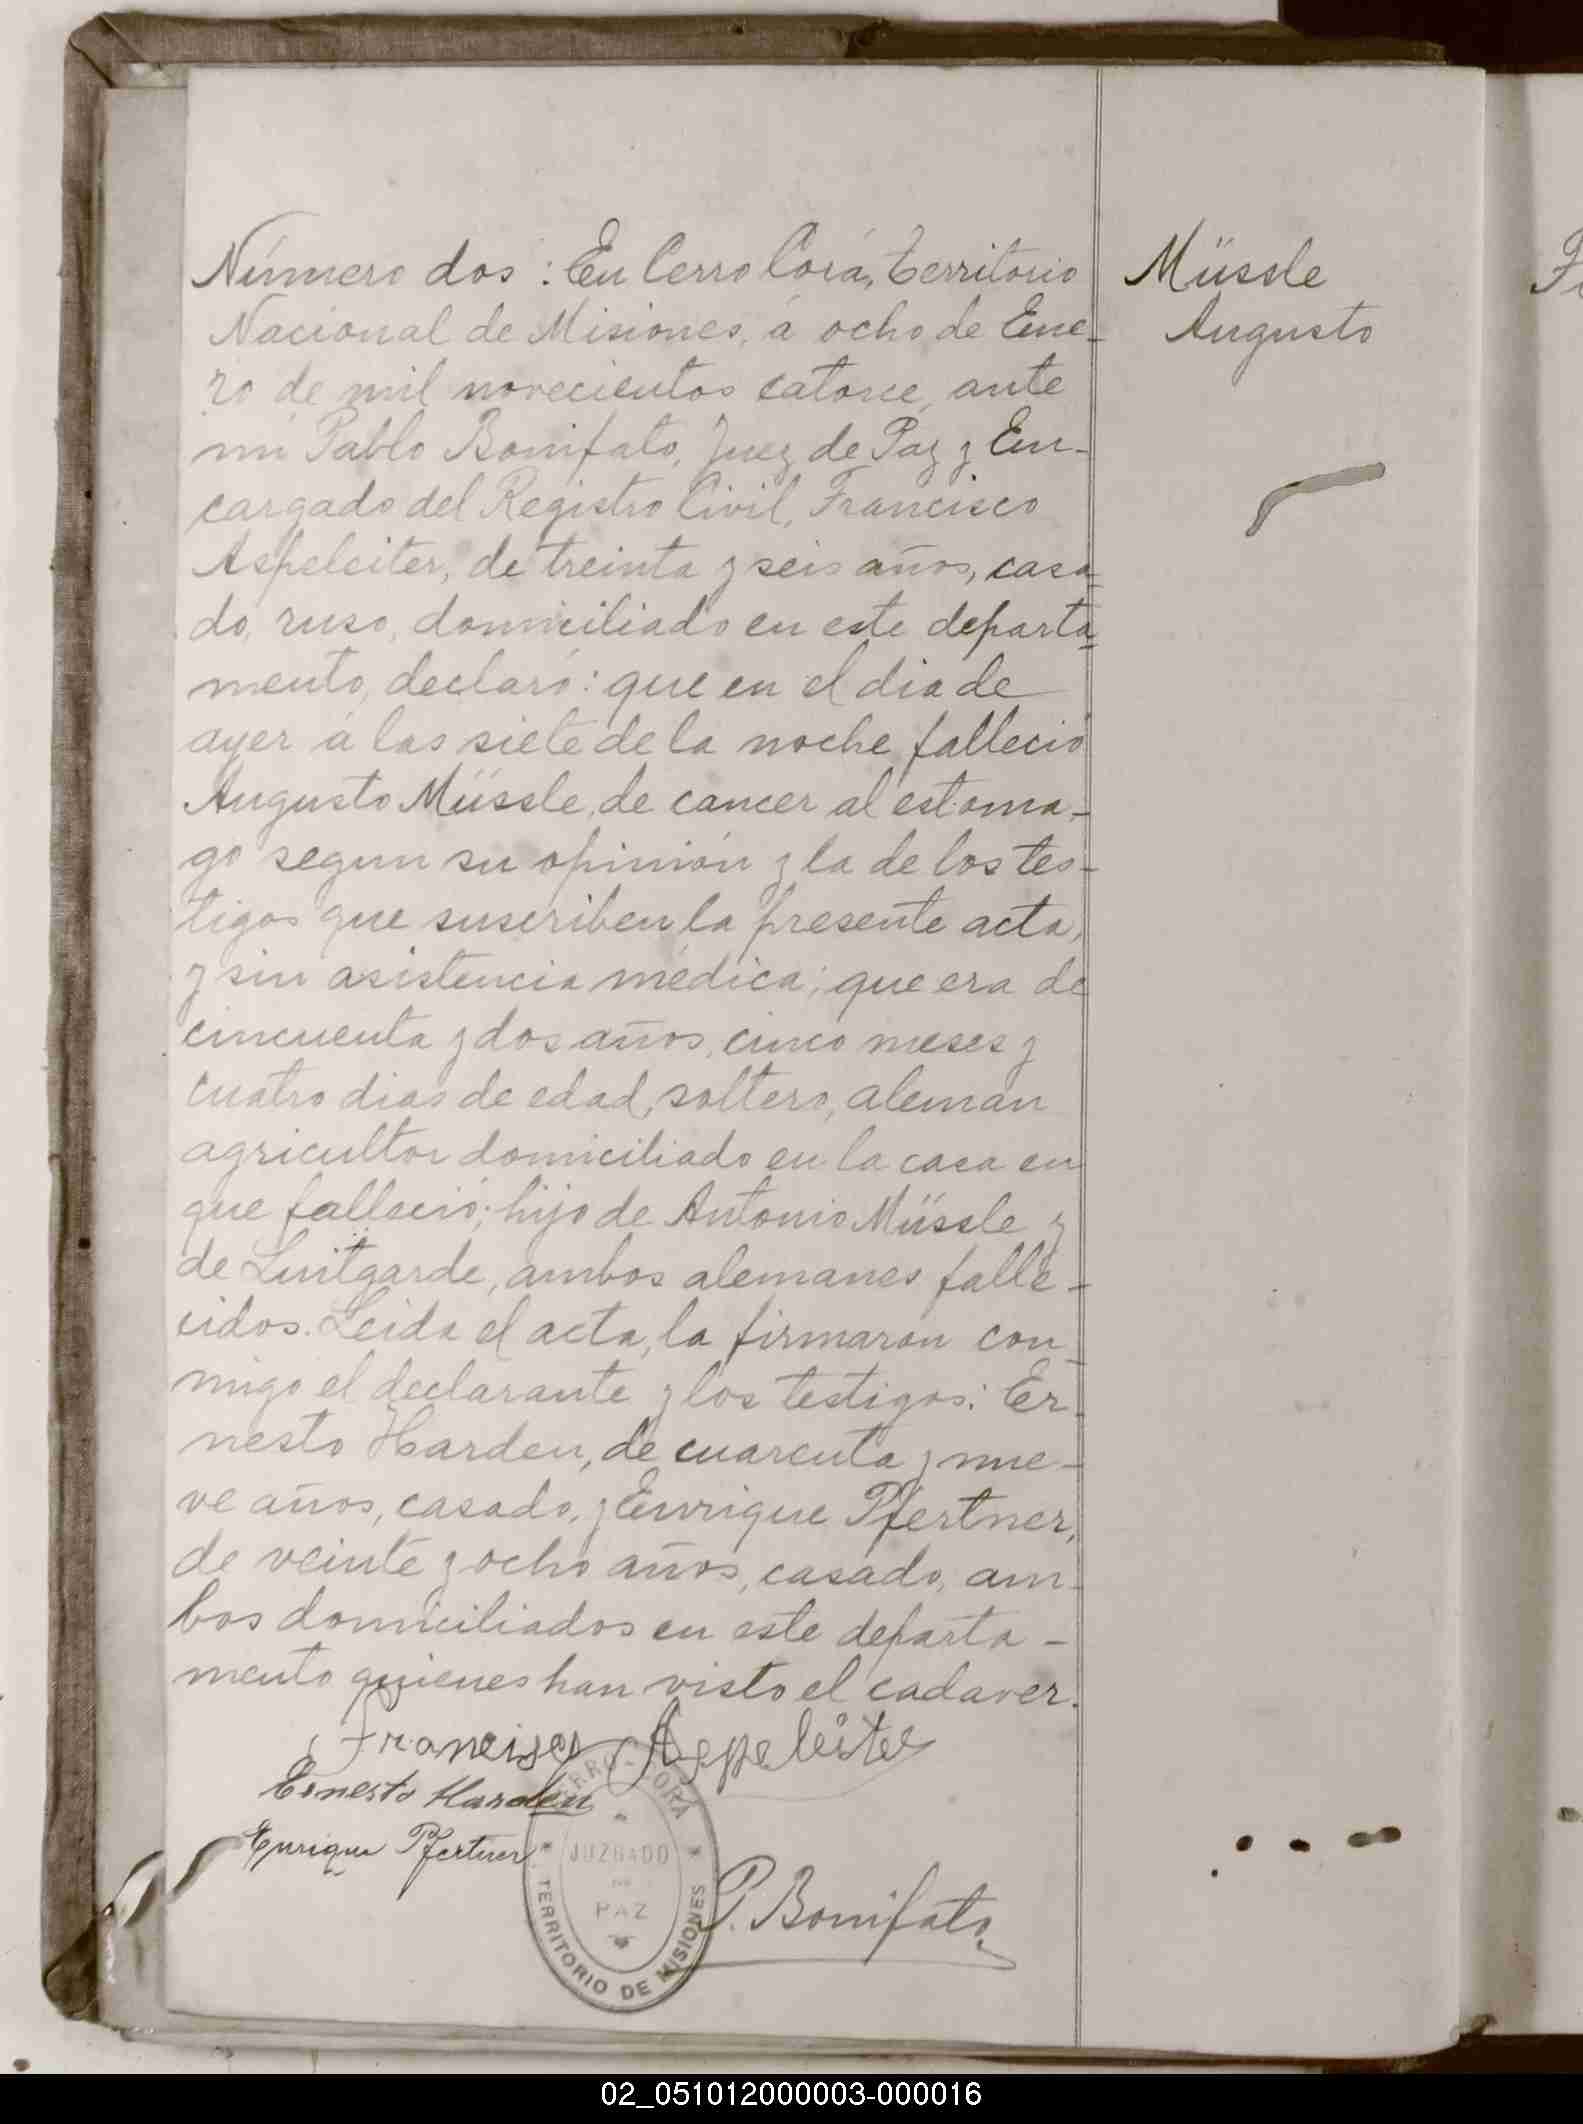 Número dos: En Cerro Corá, territorio
Nacional de Misiones, á ocho de Ene-
ro de mil novecientos catorce, ante
mi Pablo Bonifato, Juez de Paz y En-
cargado del Registro Civil, Francisco
Aspeleiter, de treinta y seis años, casa-
do, ruso, domiciliado en este departa-
mento, declaró: que en el dia de
ayer á las siete de la noche falleció
Augusto Müssle, de cancer al estoma-
go segun su opinión y la de los tes-
tigos que suscriben la presente acta,
y sin asistencia médica; que era de
cincuenta y dos años, cinco meses y
cuatro dias de edad, soltero, aleman
agricultor domiciliado en la casa en
que falleció; hijo de Antonio Müssle y
de Luitgarde, ambos alemanes falle-
cidos. Leida el acta, la firmaron con-
migo el declarante y los testigos: Er-
nesto Harden, de cuarenta y nue-
ve años, casado, y Enrique Pfertner,
de veinte y ocho años, casado, am-
bos domiciliados en este departa-
mento quienes han visto el cadaver.
Francisco Aspeleiter
Ernesto Harden
Enrique Pfertner
P. Bonifato
CERRO-CORÁ
JUZGADO
DE
PAZ
TERRITORIO DE MISIONES
Müssle
Augusto
02_051012000003-000016